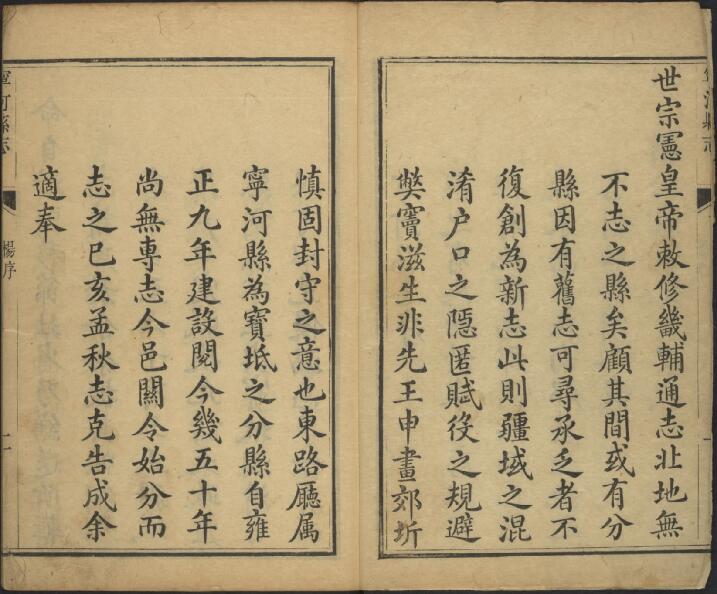 世宗憲皇帝敕修畿輔通志北地無
不志之縣矣顧其間或有分
縣因有舊志可尋承乏者不
復創為新志此則疆域之混
淆户口之隱匿賦役之規避
弊竇滋生非先王申畫郊圻
慎固封守之意也東路廳属
寧河縣為寶坻之分縣自雍
正九年建設閱今幾五十年
尚無専志今邑闗令始分而
志之已亥孟秋志克告成余
適奉
河縣志
楊序
二